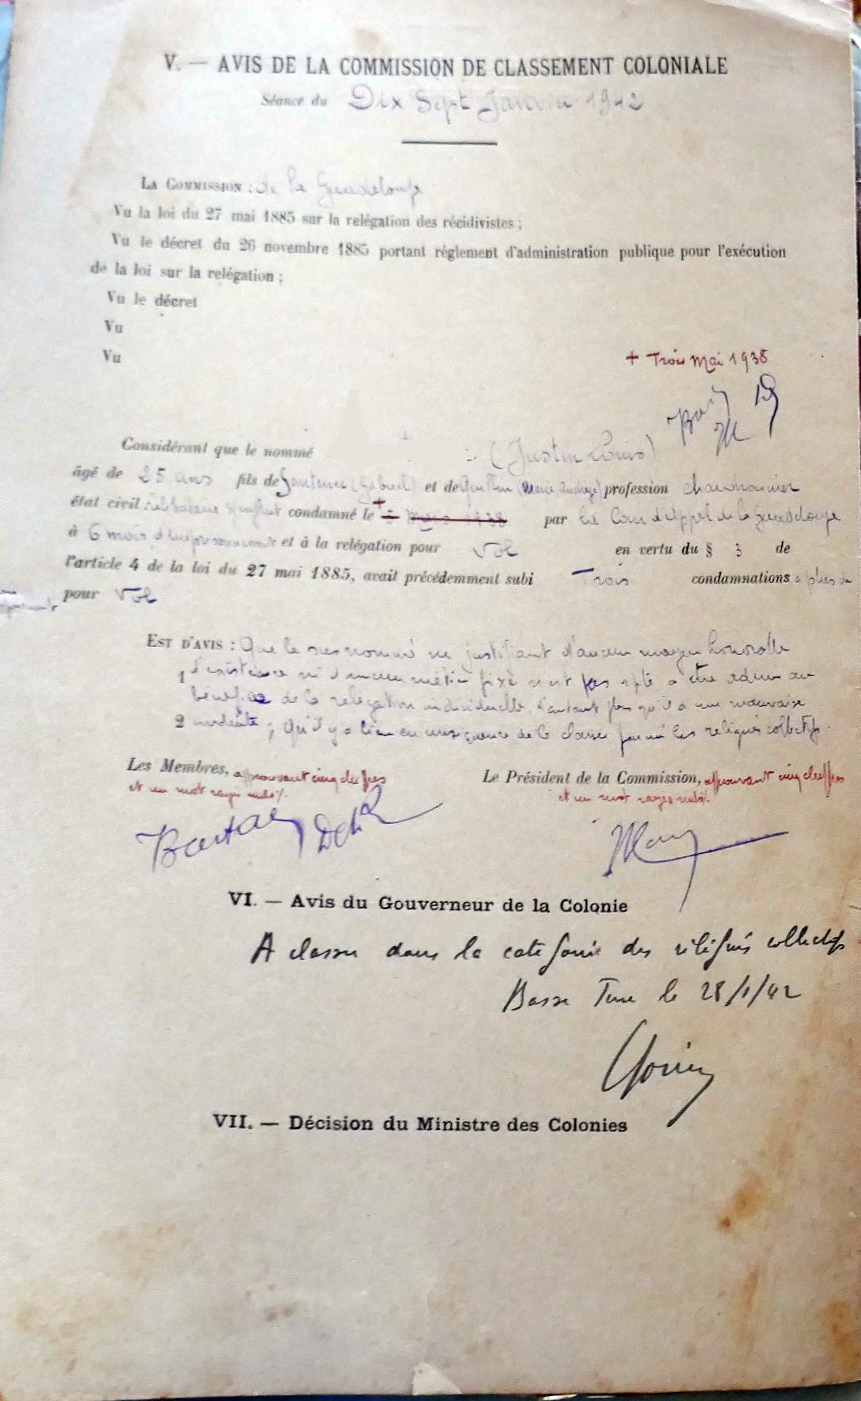 V. — AVIS DE LA COMMISSION DE CLASSEMENT COLONIALE
Séance du Dix Sept Janvier 1942
LA COMMISSION : de la Guadeloupe
Vu la loi du 27 mai 1885 sur la relégation des récidivistes ;
Vu le décret du 26 novembre 1885 portant règlement d'administration publique pour l'exécution
de la loi sur la relégation ;
Vu le décret
Vu
Vu
+ Trois Mai 1938
Considérant que le nommé (Justin Louis)
âgé de 25 ans fils de (Gabriel) et de profession charbonnier
état civil : célibataire condamné le + par la Cour d'Appel de la Guadeloupe
à 6 mois d'emprisonnement et à la relégation pour Vol en vertu du § 3 de
l'article 4 de la loi du 27 mai 1885, avait précédemment subi Trois condamnations à plus de
pour Vol
EST D'AVIS : Que le susnommé ne justifiant d'aucun moyen honorable
1 d'existence ni d'aucun métier fixe n'est pas apte à être admis au
bénéfice de la relégation individuelle, d'autant plus qu'il a une mauvaise
2 conduite ; Qu'il y a lieu en conséquence de le classer parmi les relégués collectifs.
Les Membres, approuvant cinq chiffres
et un mot rayés nuls.
Le Président de la Commission, approuvant cinq chiffres
et un mot rayés nuls.
VI. — Avis du Gouverneur de la Colonie
A classer dans la catégorie des relégués collectifs
Basse Terre le 28/1/42
VII. — Décision du Ministre des Colonies